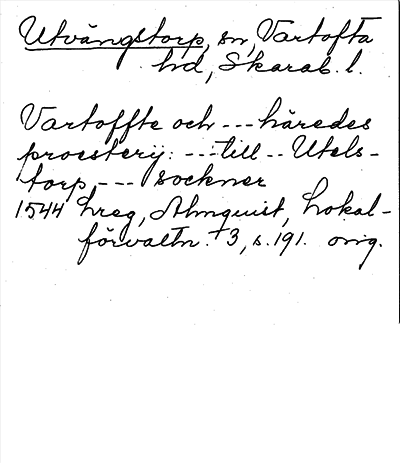 Utvängstorp, sn, Vartofta
hd, Skarab. l.
Vartoffte och --- häredes
proesterij: --- till -- Utels-
torp --- sockner
1544 hreg, Almquist, Lokal-
förvaltn. 3, s. 191. orig.